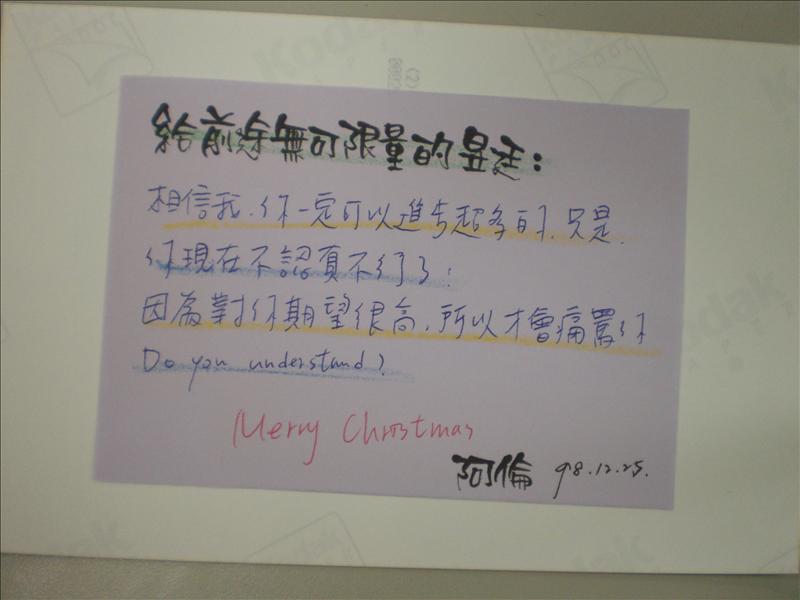 給前途無可限量的昱廷：
相信我，你一定可以進步超多的，只是，
你現在不認真不行了！
因為對你期望很高，所以才會痛罵你
Do you understand?
Merry Christmas
阿倫 98.12.25.